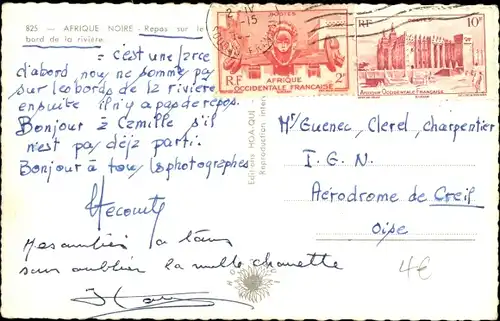 825 — AFRIQUE NOIRE - Repas sur le
bord de la rivière
= c'est une farce
d'abord, nous ne somme pas
sur les bords de la rivière
ensuite il n'y a pas de repos.
Bonjour à Camille s'il
n'est pas déjà parti.
Bonjour à tous les photographes
Lecomte
à tous
sans oublier la
Editions HOA-QUI
Reproduction inter
POSTES
RF
2F
AFRIQUE
OCCIDENTALE FRANÇAISE
RF
10F
AFRIQUE OCCIDENTALE FRANÇAISE
Mr Guenec, Clerel, charpentier
I. G. N.
Aérodrome de Creil
Oise
4€